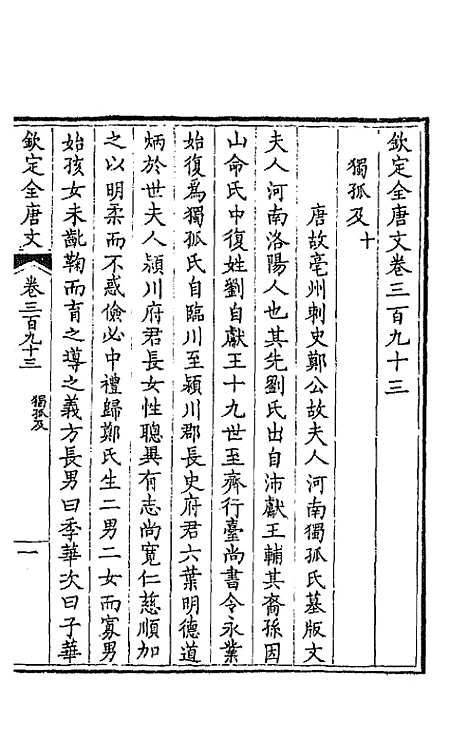 欽定全唐文卷三百九十三
獨孤及十
唐故亳州刺史鄭公故夫人河南獨孤氏墓版文
夫人河南洛陽人也其先劉氏出自沛獻王輔其裔孫因
山命氏中復姓劉自獻王十九世至齊行臺尚書令永業
始復為獨孤氏自臨川至潁川郡長史府君六葉明德道
炳於世夫人潁川府君長女性聰異有志尚寬仁慈順加
之以明柔而不惑儉必中禮歸鄭氏生二男二女而寡男
始孩女未齓鞠而育之導之義方長男曰季華次曰子華
欽定全唐文
卷三百九十三
獨孤及
一